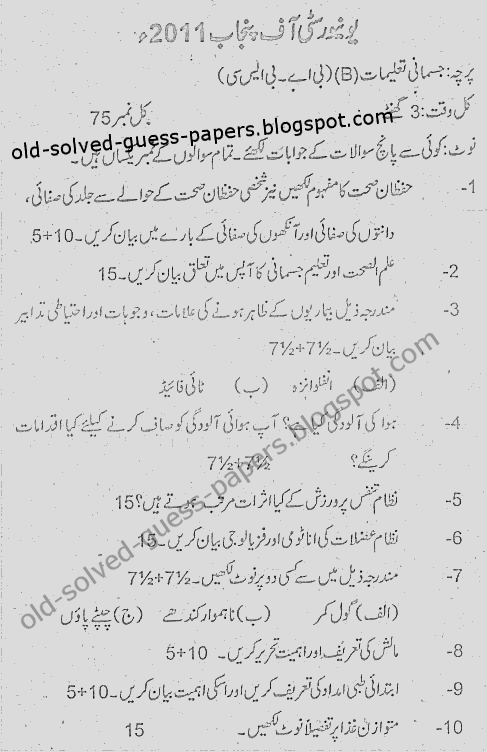 یونیورسٹی آف پنجاب 2011ء
پرچہ: جسمانی تعلیمات (B) (بی اے۔ بی ایس سی)
کل وقت: 3 گھنٹے کل نمبر 75
old-solved-guess-papers.blogspot.com
نوٹ: کوئی سے پانچ سوالات کے جوابات لکھئے۔ تمام سوالوں کے نمبر یکساں ہیں۔
1- حفظان صحت کا مفہوم لکھیں نیز شخصی حفظان صحت کے حوالے سے جلد کی صفائی،
دانتوں کی صفائی اور آنکھوں کی صفائی کے بارے میں بیان کریں۔ 10+5
2- علم الصحت اور تعلیم جسمانی کا آپس میں تعلق بیان کریں۔ 15
3- مندرجہ ذیل بیماریوں کے ظاہر ہونے کی علامات، وجوہات اور احتیاطی تدابیر
بیان کریں۔ 7½+7½
(الف) انفلوانزہ (ب) ٹائی فائیڈ
4- ہوا کی آلودگی کیا ہے؟ آپ ہوائی آلودگی کو صاف کرنے کیلئے کیا اقدامات
کرینگے؟ 7½+7½
5- نظام تنفس پر ورزش کے کیا اثرات مرتب ہوتے ہیں؟ 15
6- نظام عضلات کی اناٹومی اور فزیالوجی بیان کریں۔ 15
7- مندرجہ ذیل میں سے کسی دو پر نوٹ لکھیں۔ 7½+7½
(الف) گول کمر (ب) ناہموار کندھے (ج) چپٹے پاؤں
8- مالش کی تعریف اور اہمیت تحریر کریں۔ 10+5
9- ابتدائی طبی امداد کی تعریف کریں اور اسکی اہمیت بیان کریں۔ 10+5
10- متوازن غذا پر تفصیلاً نوٹ لکھیں۔ 15
old-solved-guess-papers.blogspot.com